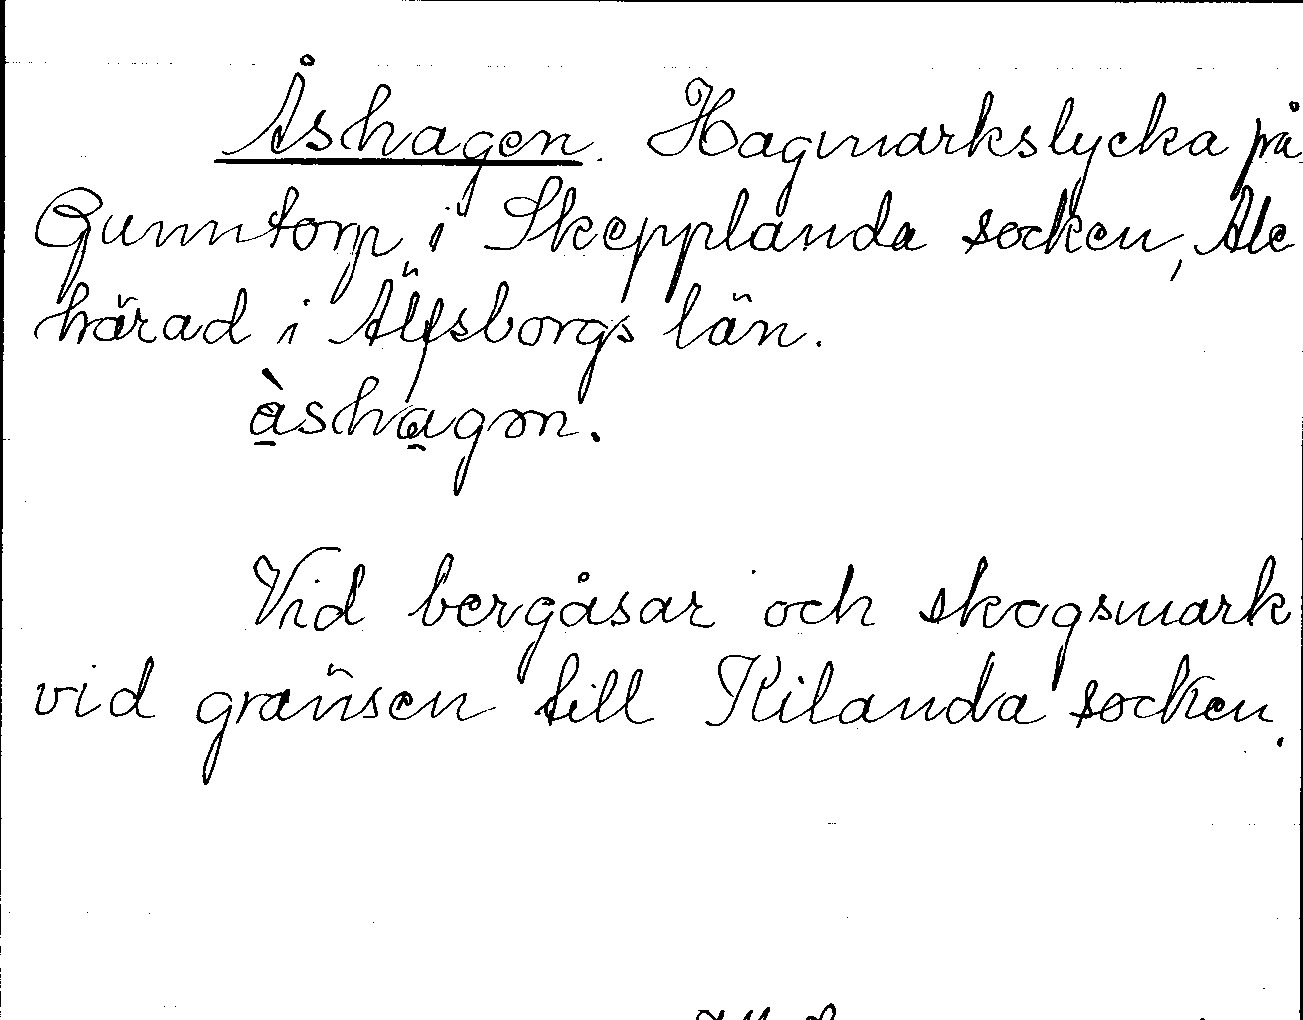 Åshagen. Hagmarkslycka på
Gunntorp i Skepplanda socken, Ale
härad i Älfsborgs län.
å̱̀sha̱gən.
Vid bergåsar och skogsmark
vid gränsen till Kilanda socken.